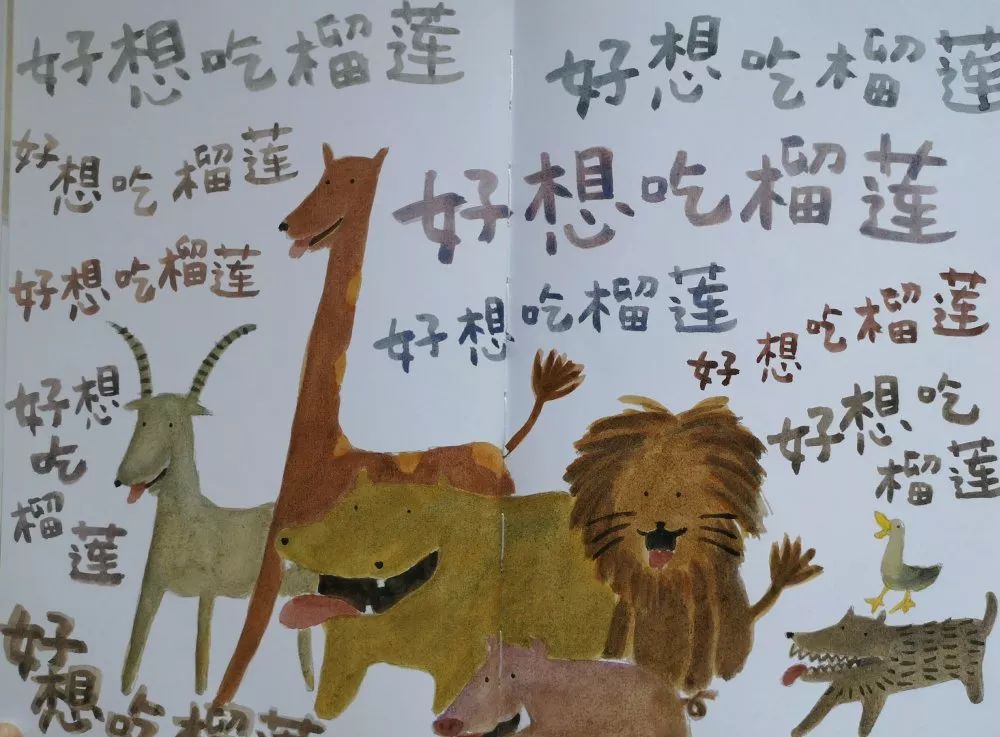 好想吃榴莲
好想吃榴莲
好想吃榴莲
好想吃榴莲
好想吃榴莲
好想吃榴莲
好想吃榴莲
好想
吃
榴
莲
好想吃
榴莲
好想吃榴莲